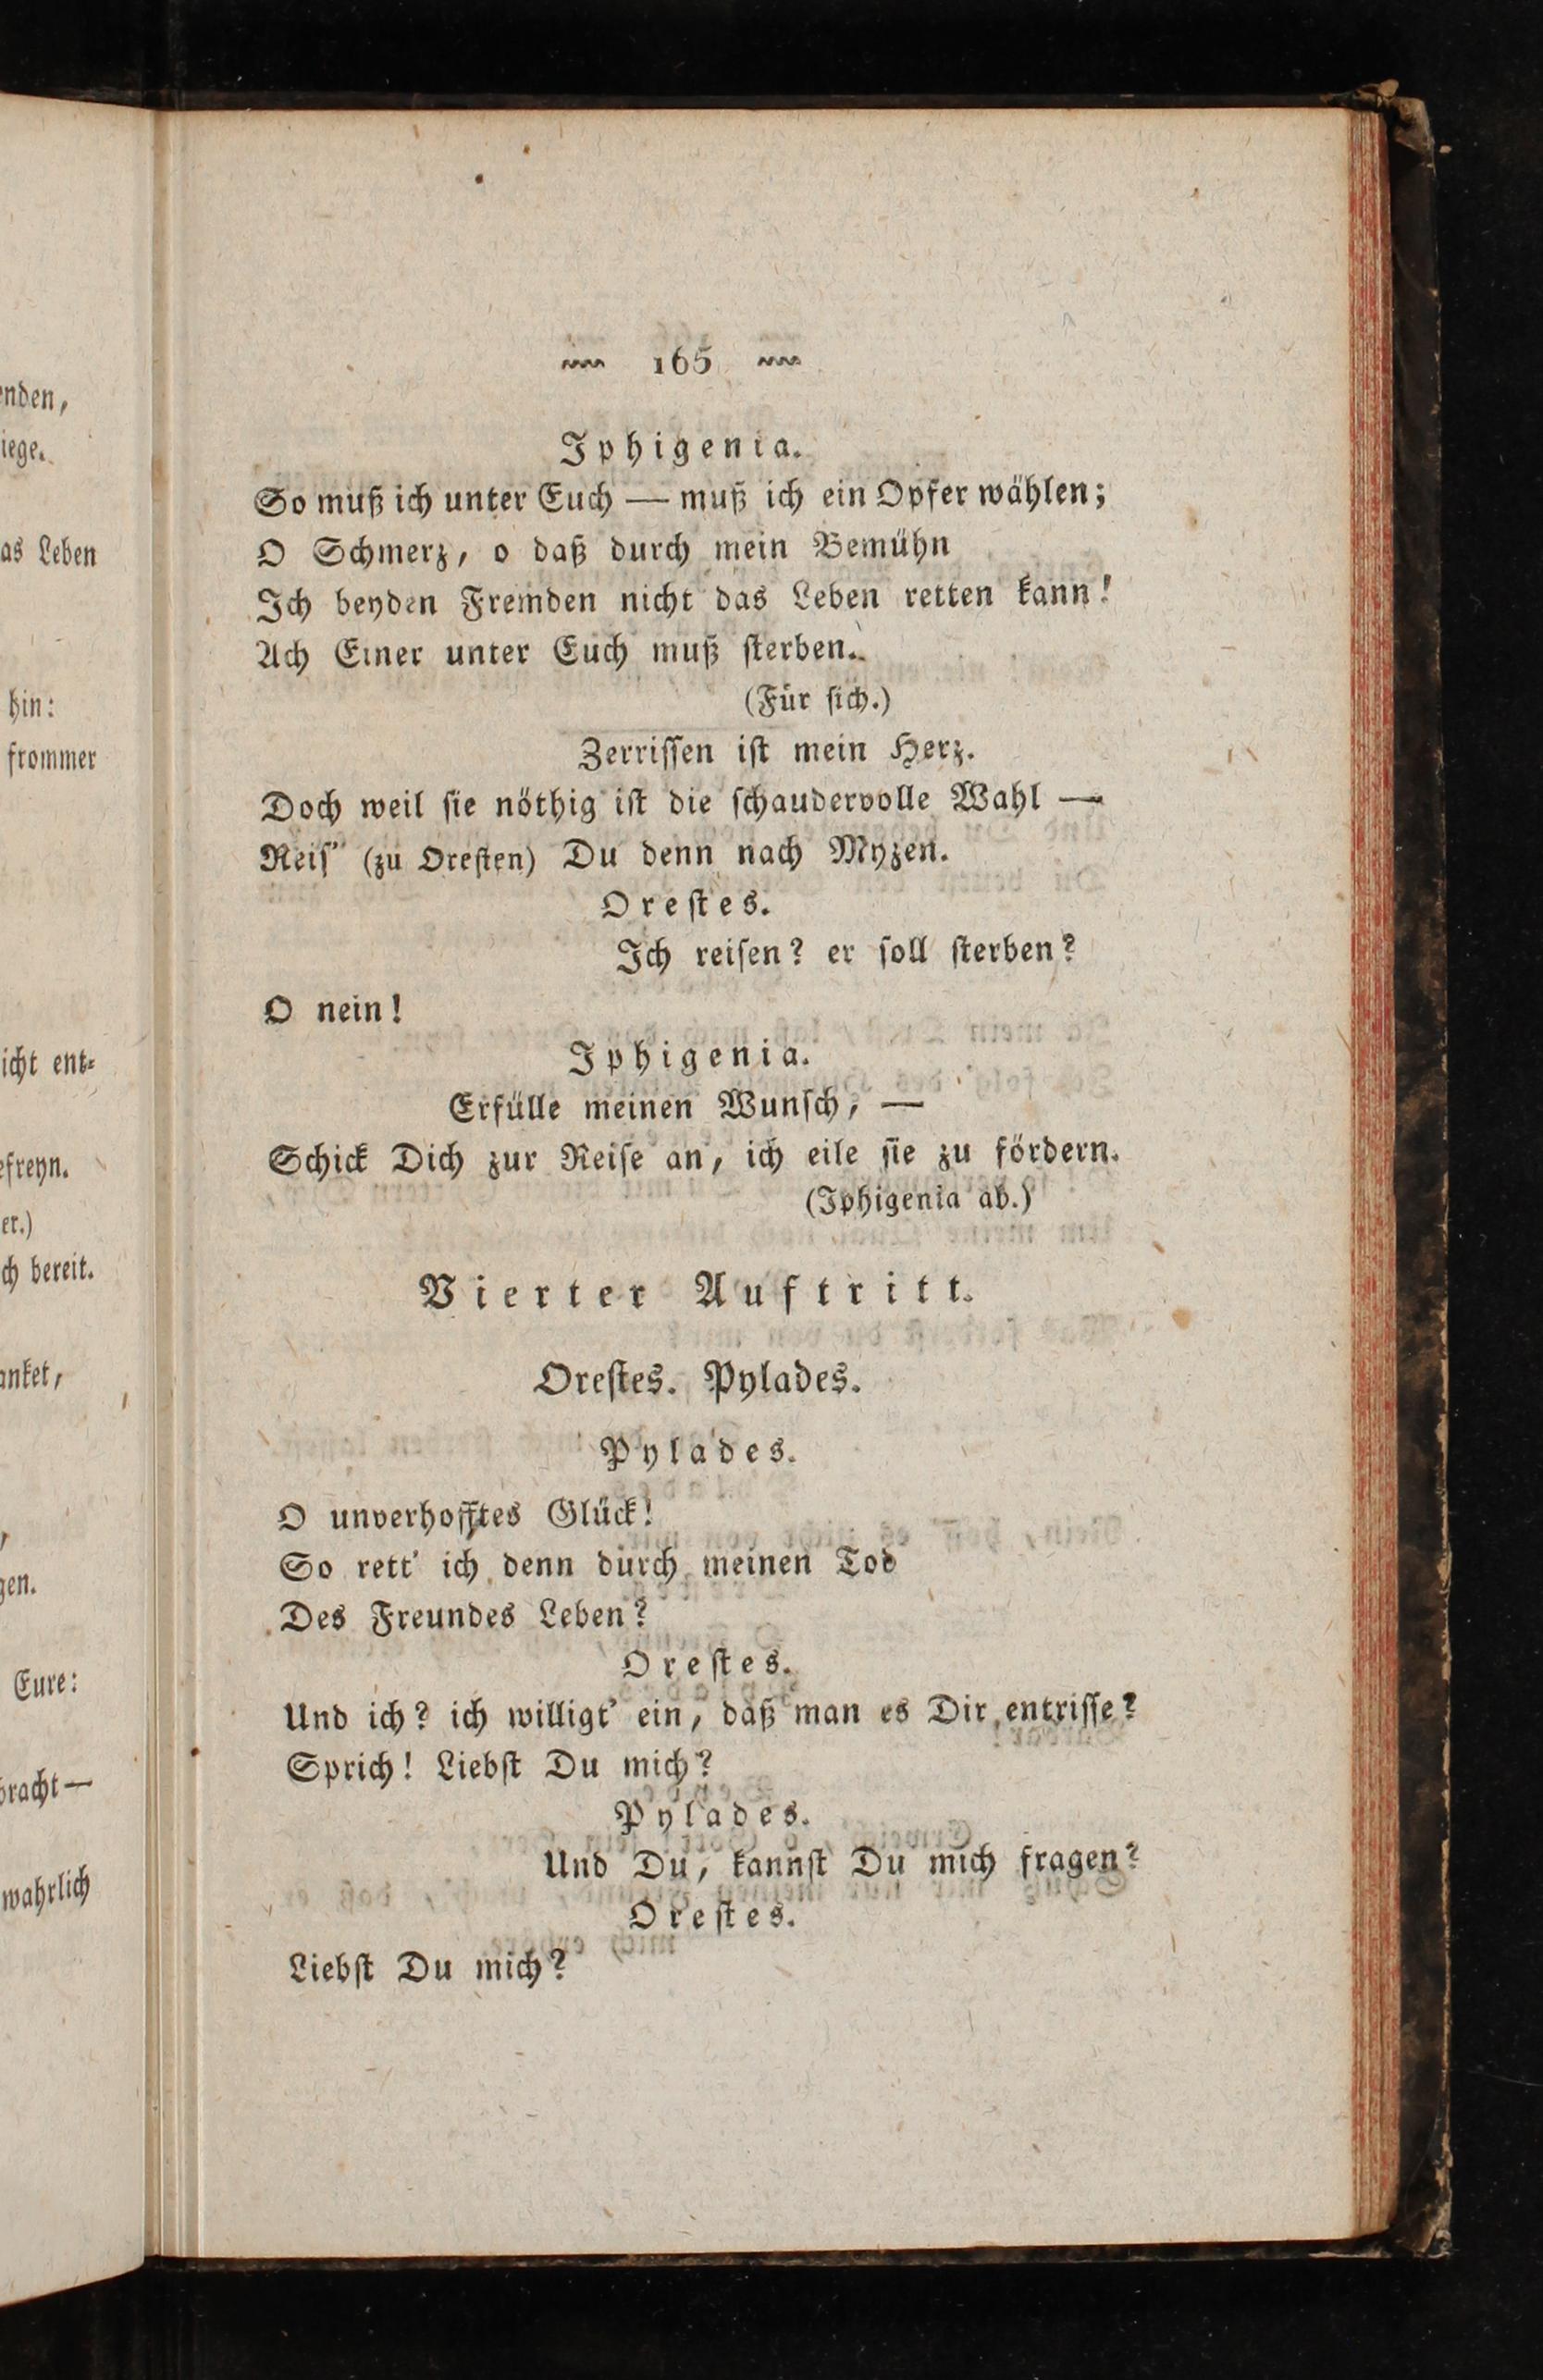 enden,
iege.
as Leben
hin:
frommer
icht ent⸗
efreyn.
er.)
ch bereit.
anket,
gen.
Eure:
bracht —
wahrlich
165
Iphigenia.
So muß ich unter Euch — muß ich ein Opfer wählen;
O Schmerz, o daß durch mein Bemühn
Ich beyden Fremden nicht das Leben retten kann!
Ach Einer unter Euch muß ſterben.
(Für ſich.)
Zerriſſen iſt mein Herz.
Doch weil ſie nöthig iſt die ſchaudervolle Wahl —
Reiſ' (zu Oreſten) Du denn nach Myzen.
Oreſtes.
Ich reiſen? er ſoll ſterben?
O nein!
Iphigenia.
Erfülle meinen Wunſch, —
Schick Dich zur Reiſe an, ich eile ſie zu fördern.
(Iphigenia ab.)
Vierter Auftritt.
Oreſtes. Pylades.
Pylades.
O unverhofftes Glück!
So rett' ich denn durch meinen Tod
Des Freundes Leben?
Oreſtes.
Und ich? ich willigt' ein, daß man es Dir entriſſe?
Sprich! Liebſt Du mich?
Pylades.
Und Du, kannſt Du mich fragen?
Oreſtes.
Liebſt Du mich?